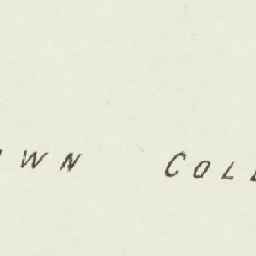 WN COL